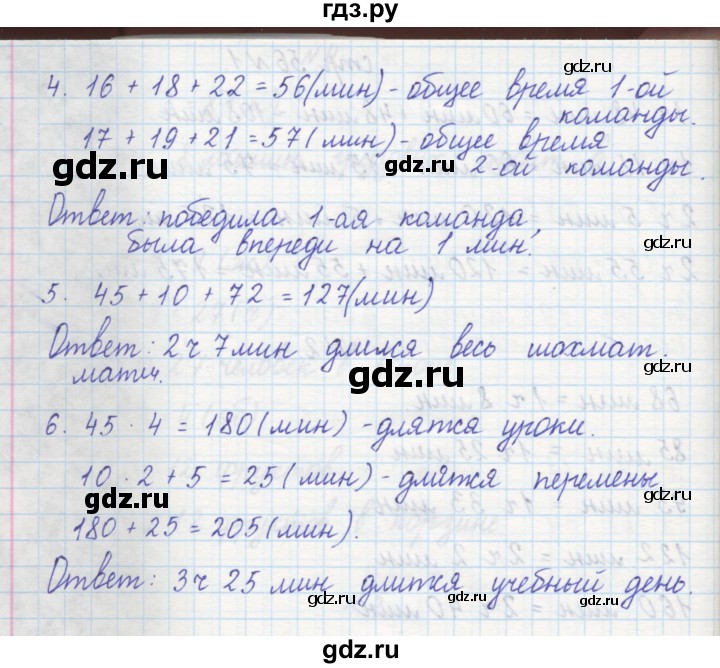 гдз.ру
4. 16 + 18 + 22 = 56 (мин) - общее время 1-ой
команды.
17 + 19 + 21 = 57 (мин) - общее время
2-ой команды.
Ответ: победила 1-ая команда,
была впереди на 1 мин.
5. 45 + 10 + 72 = 127 (мин)
Ответ: 2 ч 7 мин длился весь шахмат.
матч.
6. 45 · 4 = 180 (мин) - длятся уроки.
10 · 2 + 5 = 25 (мин) - длятся перемены
180 + 25 = 205 (мин).
Ответ: 3 ч 25 мин длится учебный день.
gdz.ru
gdz.ru
gdz.ru
gdz.ru
gdz.ru
gdz.ru
gdz.ru
gdz.ru
gdz.ru
gdz.ru
gdz.ru
gdz.ru
gdz.ru